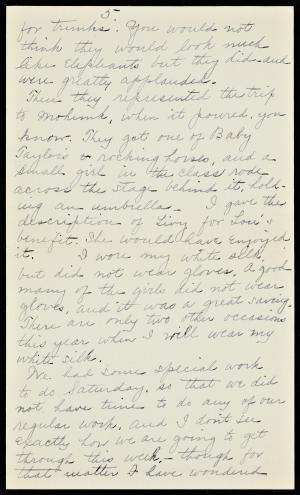 5
for trunks. You would not
think they would look much
like Elephants but they did and
were greatly applauded.
Then they represented the trip
to Mohonk, when it poured, you
know. They got one of Baby
Taylor's rocking horses, and a
small girl in the class rode
across the stage behind it, hold-
ing an umbrella. I gave the
description of Livy for Lou's
benefit. She would have enjoyed
it. I wore my white silk
but did not wear gloves. A good
many of the girls did not wear
gloves, and it was a great saving.
There are only two other occasions
this year when I will wear my
white silk.
We had some special work
to do Saturday. so that we did
not have time to do any of our
regular work, and I don't see
exactly how we are going to get
through this week, though for
that matter I have wondered